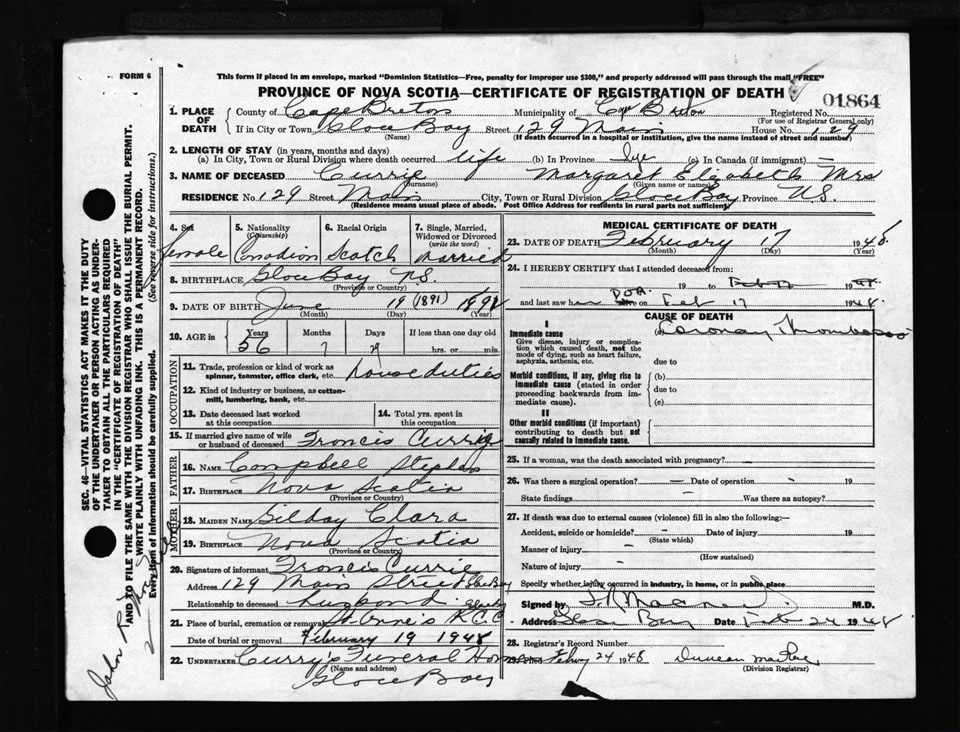 FORM 6
This form if placed in an envelope, marked "Dominion Statistics—Free, penalty for improper use $300," and properly addressed will pass through the mail "FREE"
PROVINCE OF NOVA SCOTIA—CERTIFICATE OF REGISTRATION OF DEATH
01864
1. PLACE OF DEATH
County of Cape Breton Municipality of Cape Breton Registered No.
(For use of Registrar General only)
If in City or Town Glace Bay Street 129 Main House No. 129
(Name) (If death occurred in a hospital or institution, give the name instead of street and number)
2. LENGTH OF STAY (in years, months and days)
(a) In City, Town or Rural Division where death occurred life (b) In Province life (c) In Canada (if immigrant) —
3. NAME OF DECEASED Currie Margaret Elizabeth Mrs
(Surname) (Given name or names)
RESIDENCE No. 129 Street Main City, Town or Rural Division Glace Bay Province N.S.
(Residence means usual place of abode. Post Office Address for residents in rural parts not sufficient)
4. Sex 5. Nationality (Citizenship) 6. Racial Origin 7. Single, Married, Widowed or Divorced (write the word)
female Canadian Scotch Married
8. BIRTHPLACE Glace Bay N.S.
(Province or Country)
9. DATE OF BIRTH June 19 (1891) 1892
(Month) (Day) (Year)
10. AGE in Years Months Days If less than one day old
56 7 29 hrs. or min.
OCCUPATION
11. Trade, profession or kind of work as spinner, teamster, office clerk, etc. house duties
12. Kind of industry or business, as cotton-mill, lumbering, bank, etc.
13. Date deceased last worked at this occupation
14. Total yrs. spent in this occupation
15. If married give name of wife or husband of deceased Francis Currie
FATHER
16. NAME Campbell Stephen
17. BIRTHPLACE Nova Scotia
(Province or Country)
MOTHER
18. MAIDEN NAME Gilday Clara
19. BIRTHPLACE Nova Scotia
(Province or Country)
20. Signature of informant Francis Currie
Address 129 Main Street Glace Bay
Relationship to deceased husband
21. Place of burial, cremation or removal St. Anne's R.C.C.
Date of burial or removal February 19 1948
22. UNDERTAKER Curry's Funeral Home
(Name and address)
Glace Bay
MEDICAL CERTIFICATE OF DEATH
23. DATE OF DEATH February 17 1948
(Month) (Day)
24. I HEREBY CERTIFY that I attended deceased from:
19 to Feb 17 19 48
and last saw h D.O.A. alive on Feb 17 1948.
CAUSE OF DEATH
I
Immediate cause (a) Coronary Thrombosis
Give disease, injury or complication which caused death, not the mode of dying, such as heart failure, asphyxia, asthenia, etc.
due to
Morbid conditions, if any, giving rise to immediate cause (stated in order proceeding backwards from immediate cause).
(b)
due to
(c)
II
Other morbid conditions (if important) contributing to death but not causally related to immediate cause.
25. If a woman, was the death associated with pregnancy?
26. Was there a surgical operation? — Date of operation - 19
State findings — Was there an autopsy?
27. If death was due to external causes (violence) fill in also the following:—
Accident, suicide or homicide? - Date of injury 19
(State which)
Manner of injury —
(How sustained)
Nature of injury —
Specify whether injury occurred in industry, in home, or in public place
Signed by M.D.
Address Glace Bay Date Feb 24 1948
28. Registrar's Record Number
24 1948 Duncan
(Division Registrar)
SEC. 46—VITAL STATISTICS ACT MAKES IT THE DUTY
OF THE UNDERTAKER OR PERSON ACTING AS UNDER-
TAKER TO OBTAIN ALL THE PARTICULARS REQUIRED
IN THE "CERTIFICATE OF REGISTRATION OF DEATH"
AND TO FILE THE SAME WITH THE DIVISION REGISTRAR WHO SHALL ISSUE THE BURIAL PERMIT.
WRITE PLAINLY WITH UNFADING INK. THIS IS A PERMANENT RECORD.
Every item of information should be carefully supplied. (See reverse side for instructions.)
John R.